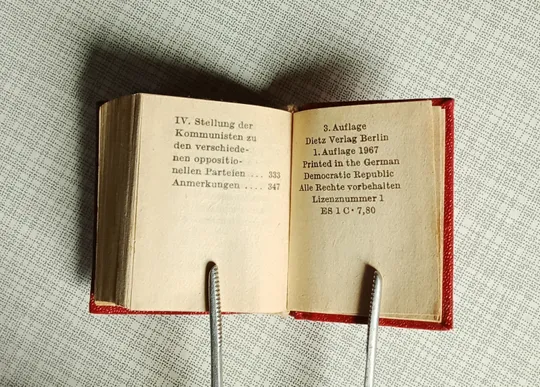 IV. Stellung der
Kommunisten zu
den verschiede-
nen oppositio-
nellen Parteien ... 333
Anmerkungen .... 347
3. Auflage
Dietz Verlag Berlin
1. Auflage 1967
Printed in the German
Democratic Republic
Alle Rechte vorbehalten
Lizenznummer 1
ES 1 C · 7,80